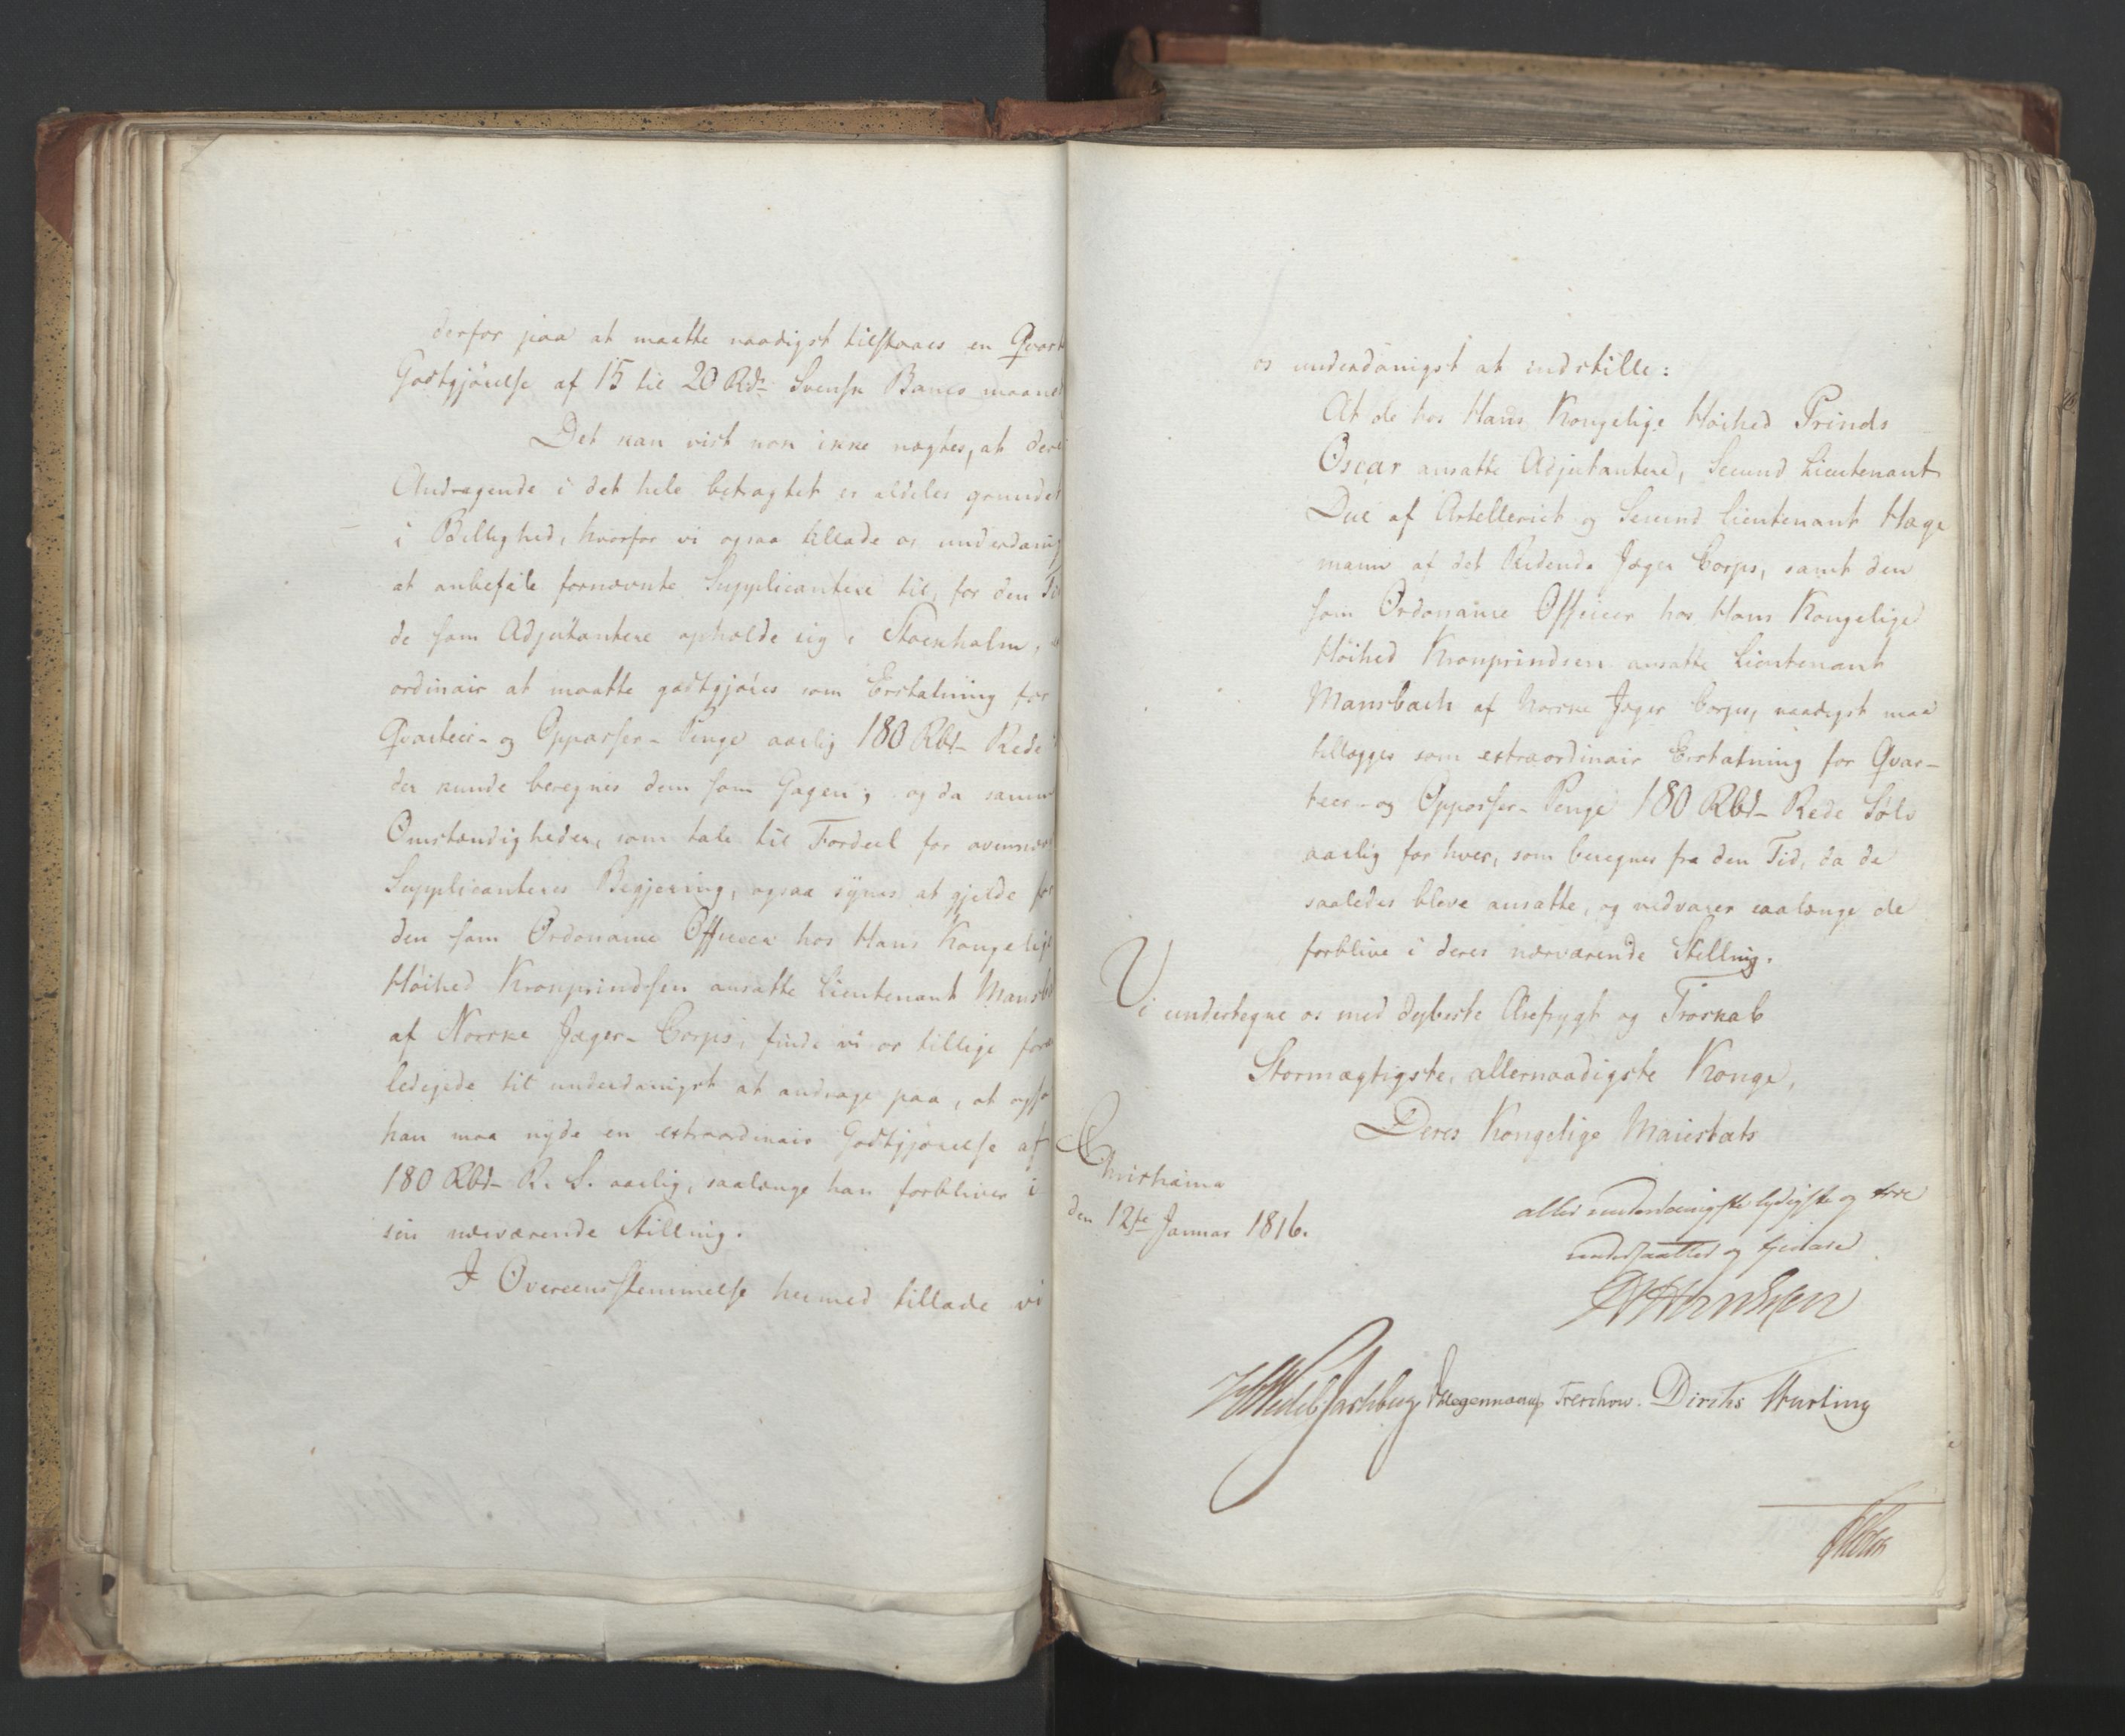 derfor paa at maatte naadigst tilstaaes en Qvart
Godtgjörelse af 15 til 20 Rdr Svensk Banco maaned
Det kan vist nok ikke nægtes, at dere
Andragende i det hele betragtet er aldeles grundet
i Billighed, hvorfor vi ogsaa tillade os underdanig
at anbefale fornævnte Supplicantere til, for den Ti
de som Adjutantere opholde sig i Stockholm,
ordinair at maatte godtgjöres som Erstatning for
Qvarteer- og Oppasser-Penge aarlig 180 Rbd- Rede
der kunde beregnes dem som Gagen; og da samme
Omstændigheder, som tale til Fordeel for ovennæv
Supplicanteres Begjering, ogsaa synes at gjelde for
den som Ordonance Officeer hos Hans Kongelige
Höihed Kronprindsen ansatte Lieutenant Mansba
af Norske Jæger-Corps, finde vi os tillige foran
ledigede til underdanigst at andrage paa, at ogsa
han maa nyde en extraordinair Godtgjörelse af
180 Rbd- R. S. aarlig, saalænge han forbliver i
sin nærværende Stilling.
I Overeensstemmelse hermed tillade vi
os underdanigst at indstille:
At de hos Hans Kongelige Höihed Prinds
Oscar ansatte Adjutantere, Secund Lieutenant
Due af Artelleriet og Secund Lieutenant Hage
mann af det Ridende Jæger Corps, samt den
som Ordonance Officeer hos Hans Kongelige
Höihed Kronprindsen ansatte Lieutenant
Mansbach af Norske Jæger Corps, naadigst maa
tillægges som extraordinair Erstatning for Qvar-
teer- og Oppasser-Penge 180 Rbd- Rede Sölv
aarlig for hver, som beregnes fra den Tid, da de
saaledes bleve ansatte, og vedvarer saalænge de
forblive i deres nærværende Stelling.
Vi undertegne os med dybeste Ærefrygt og Troskab
Stormægtigste, allernaadigste Konge,
Deres Kongelige Maiestæts
Christiania
den 12te Januar 1816.
aller underdanigste lydigste og troe
undersaatter og tjenere
HWedel Jarlsberg Hegermann Treschow. Diriks Hurting